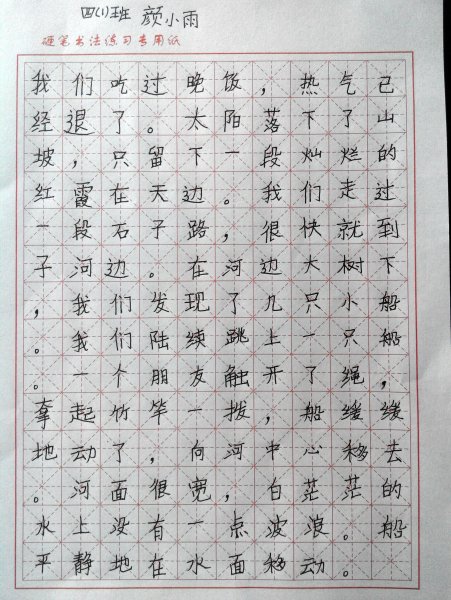 四(1)班 颜小雨
硬笔书法练习专用纸
我们吃过晚饭，热气已
经退了。太阳落下了山
坡，只留下一段灿烂的
红霞在天边。我们走过
一段石子路，很快就到
子河边。在河边大树下
，我们发现了几只小船
。我们陆续跳上一只船
。一个朋友触开了绳，
拿起竹竿一拨，船缓缓
地动了，向河中心移去
。河面很宽，白茫茫的
水上没有一点波浪。船
平静地在水面移动。